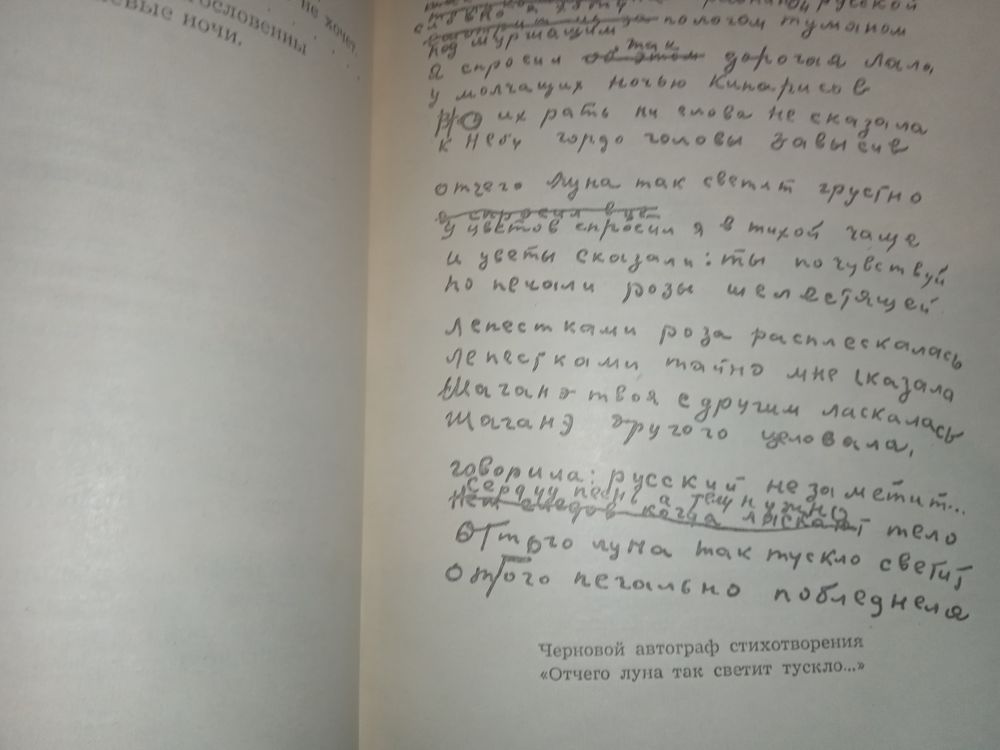 не хочет.
гословенны
евые ночи.
русской
пологом туманом
под муршащим
так
я спросил об этом дорогая Лала,
у молчащих ночью Кипарисов
но их рать ни слова не сказала
к небу гордо головы завысив
отчего луна так светит грустно
я спросил в цвет
у цветов спросил я в тихой чаще
и цветы сказали: ты почувствуй
по печали розы шелестящей
лепестками роза расплескалась
лепестками тайно мне сказала
Шаганэ твоя с другим ласкалась
Шаганэ другого целовала,
говорила: русский не заметит...
Сердцу песнь а телу нужно
когда тело
Оттого луна так тускло светит
оттого печально побледнела
Черновой автограф стихотворения
«Отчего луна так светит тускло...»